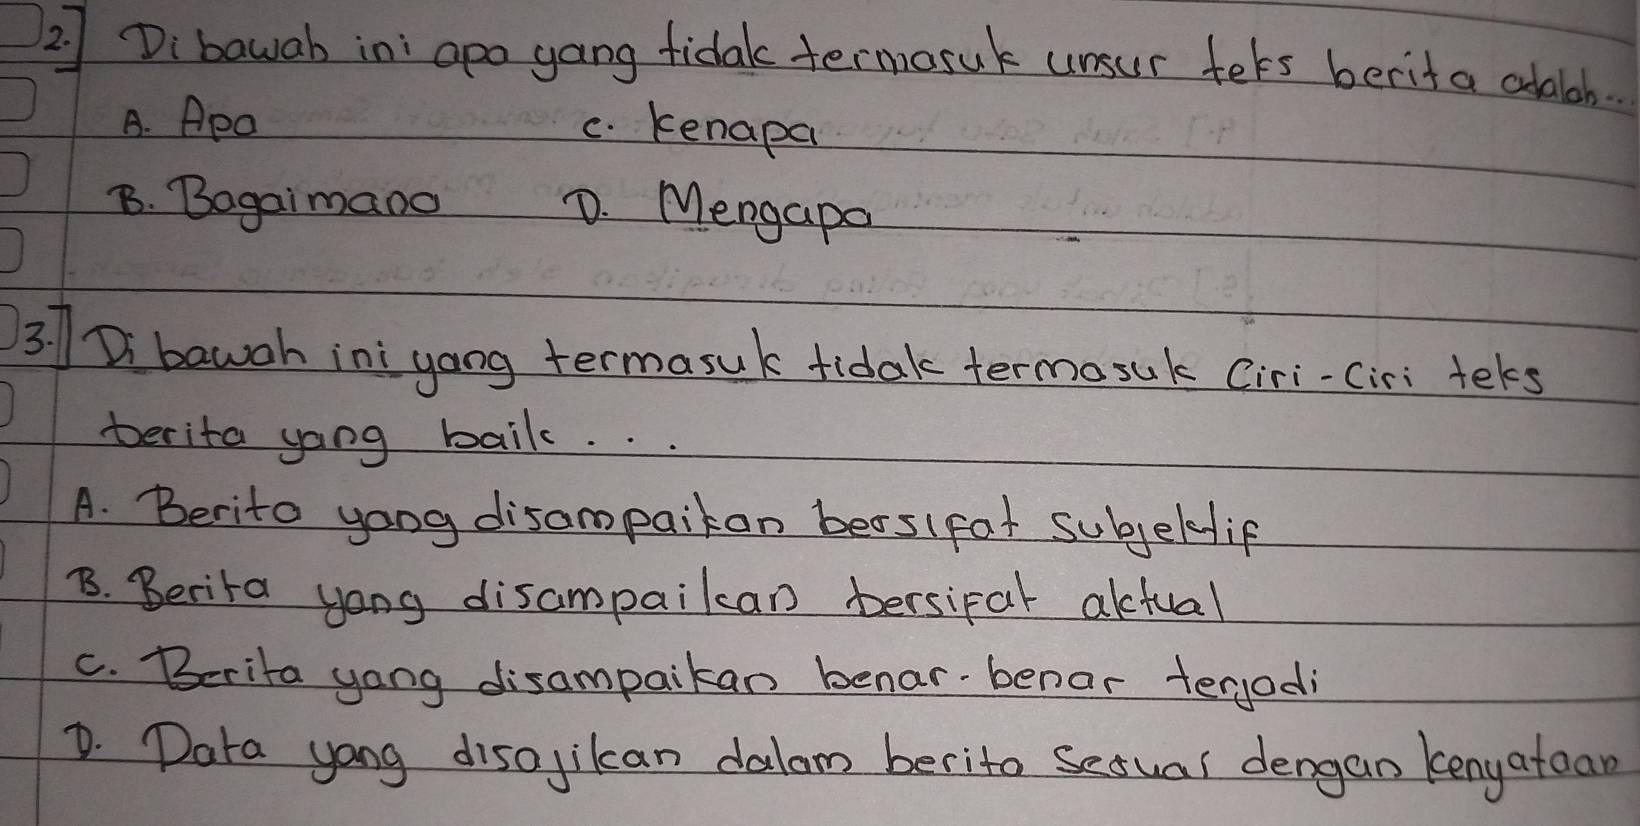 2.] Di bawah ini apa yang tidak termasuk unsur teks berita adalah...
A. Apa C. Kenapa
B. Bagaimana D. Mengapa
3.] Di bawah ini yang termasuk tidak termasuk Ciri-Ciri teks
berita yang baik...
A. Berita yang disampaikan bersifat subjektif
B. Berita yang disampaikan bersifat aktual
C. Berita yang disampaikan benar-benar terjadi
D. Data yang disajikan dalam berita sesuai dengan kenyataan